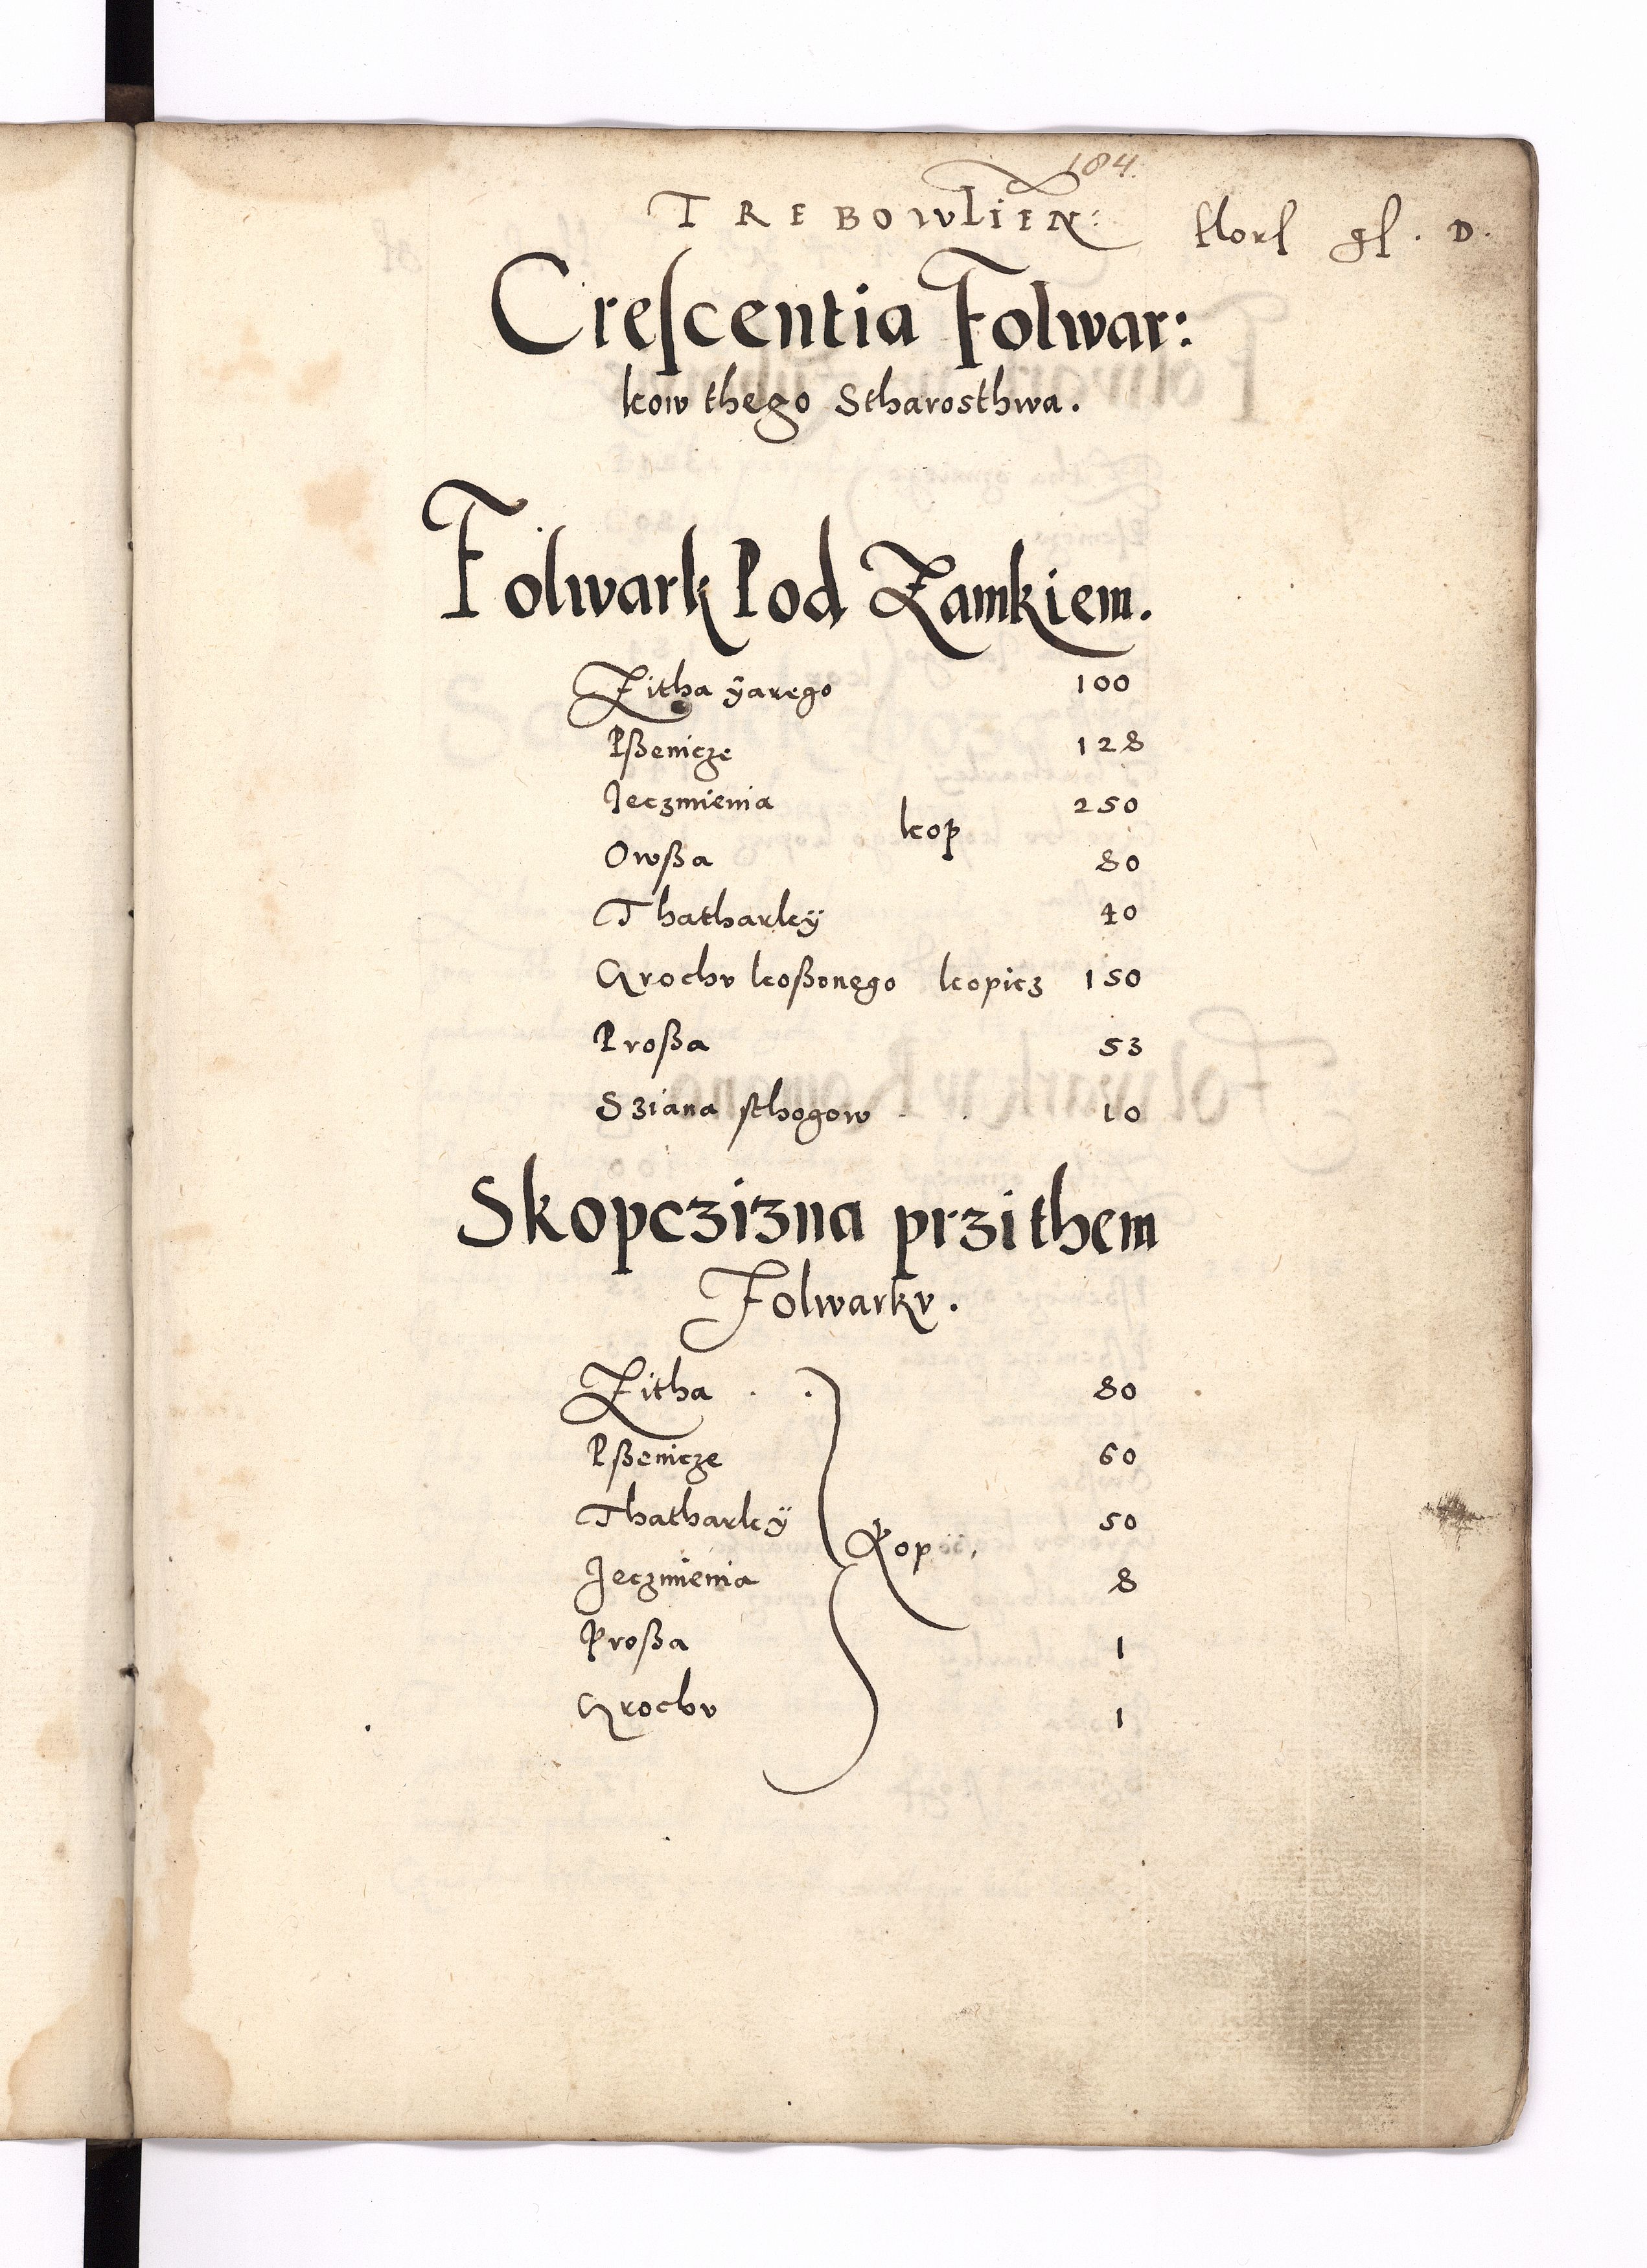 184.
TREBOWLIEN: fflorl gl. D.
Creſcentia Folwar:
kow thego Stharosthwa.
Folwark Pod Zamkiem.
Zitha ÿarego 100
Pßenicze 128
Jeczmienia 250
kop
Owßa 80
Thatharkÿ 40
Grochv koßonego kopicz 150
Proßa 53
Sziana ſthogow 10
Skopczizna przithem
Folwarkv.
Zitha 80
Pßenicze 60
Thatharkÿ 50
Kop
Jeczmienia 8
Proßa 1
Grochv 1